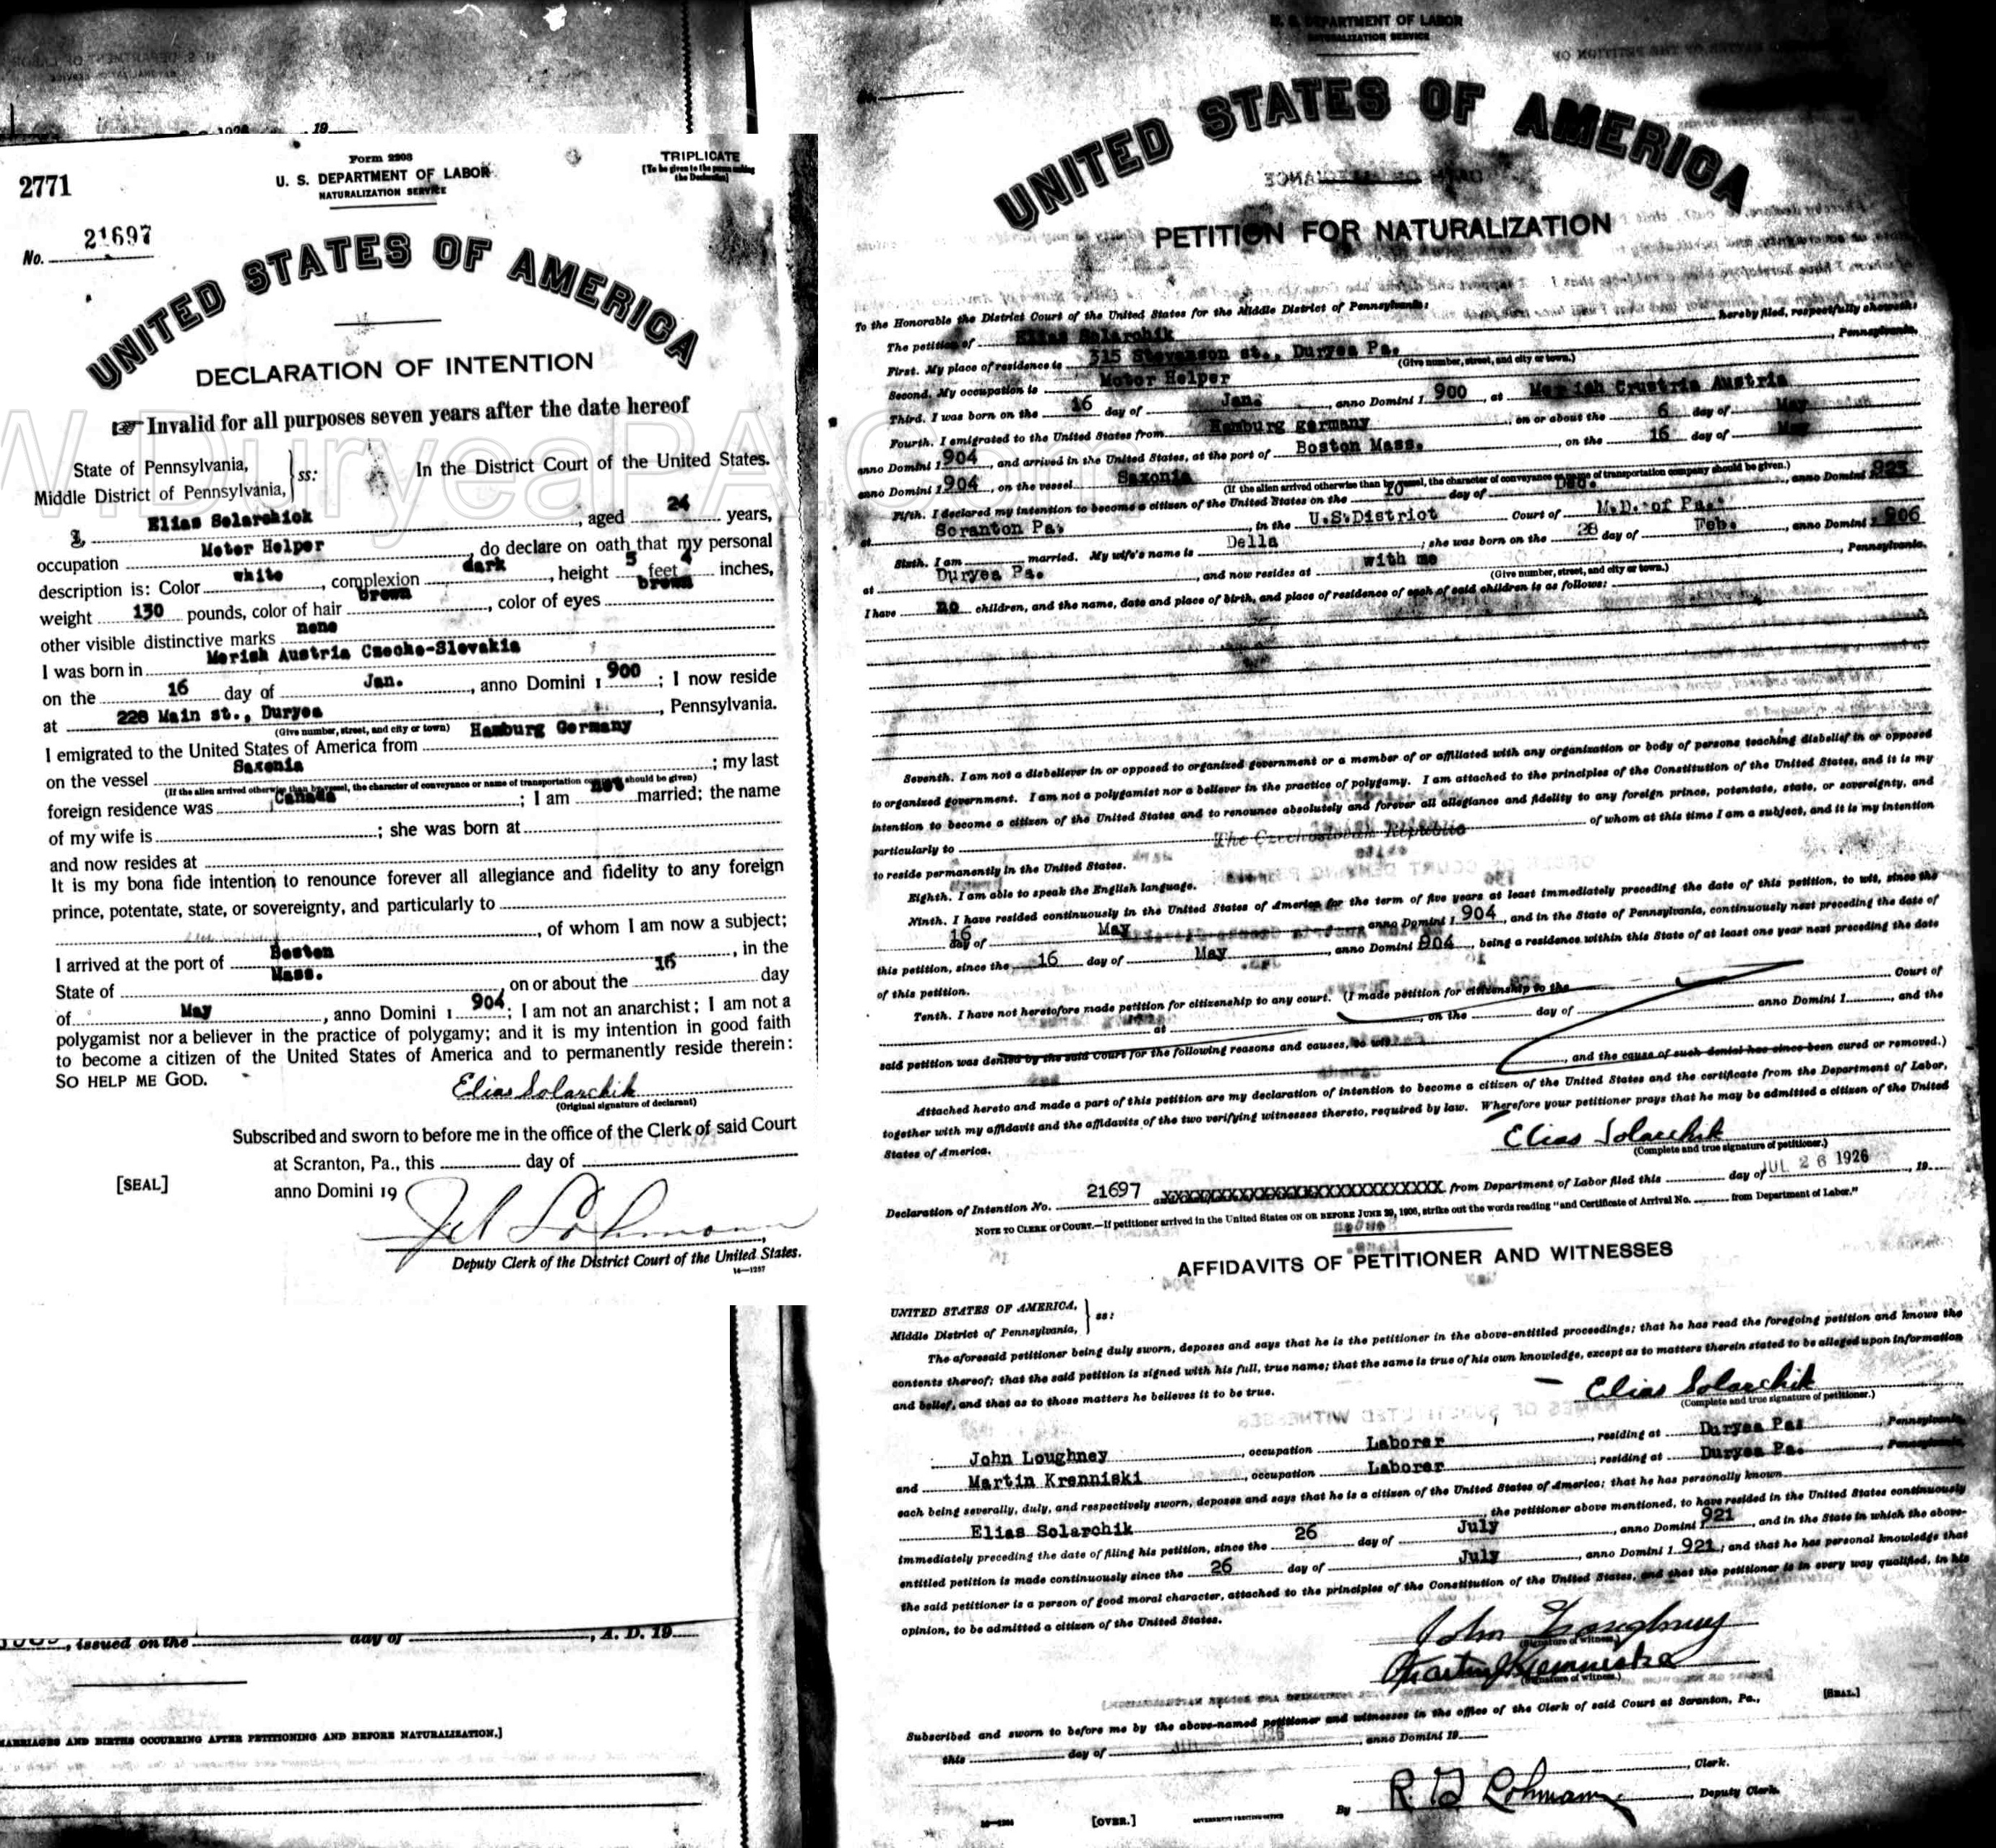 2771
Form 2203
U. S. DEPARTMENT OF LABOR
NATURALIZATION SERVICE
TRIPLICATE
[To be given to the person making the Declaration]
No. 21697
UNITED STATES OF AMERICA
DECLARATION OF INTENTION
☞ Invalid for all purposes seven years after the date hereof
State of Pennsylvania,
Middle District of Pennsylvania,
ss:
In the District Court of the United States.
I, Elias Solarchick, aged 24 years,
occupation Motor Helper, do declare on oath that my personal
description is: Color white, complexion dark, height 5 feet 4 inches,
weight 130 pounds, color of hair brown, color of eyes brown
other visible distinctive marks none
I was born in Merish Austria Czecho-Slovakia
on the 16 day of Jan., anno Domini 1 900; I now reside
at 228 Main st., Duryea, Pennsylvania.
(Give number, street, and city or town)
I emigrated to the United States of America from Hamburg Germany
on the vessel Saxonia; my last
(If the alien arrived otherwise than by vessel, the character of conveyance or name of transportation company should be given)
foreign residence was Canada; I am not married; the name
of my wife is; she was born at
and now resides at
It is my bona fide intention to renounce forever all allegiance and fidelity to any foreign
prince, potentate, state, or sovereignty, and particularly to
, of whom I am now a subject;
I arrived at the port of Boston, in the
State of Mass., on or about the 16 day
of May, anno Domini 1 904; I am not an anarchist; I am not a
polygamist nor a believer in the practice of polygamy; and it is my intention in good faith
to become a citizen of the United States of America and to permanently reside therein:
SO HELP ME GOD.
Elias Solarchik
(Original signature of declarant)
Subscribed and sworn to before me in the office of the Clerk of said Court
at Scranton, Pa., this day of
[SEAL]
anno Domini 19
Deputy Clerk of the District Court of the United States.
14—1257
, issued on the day of, A. D. 19
MARRIAGES AND BIRTHS OCCURRING AFTER PETITIONING AND BEFORE NATURALIZATION.]
U. S. DEPARTMENT OF LABOR
NATURALIZATION SERVICE
UNITED STATES OF AMERICA
PETITION FOR NATURALIZATION
To the Honorable the District Court of the United States for the Middle District of Pennsylvania:
The petition of Elias Solarchik hereby filed, respectfully showeth:
First. My place of residence is 315 Stevenson st., Duryea Pa., Pennsylvania.
(Give number, street, and city or town.)
Second. My occupation is Motor Helper
Third. I was born on the 16 day of Jan., anno Domini 1 900, at Merish Crustria Austria
Fourth. I emigrated to the United States from Hamburg germany, on or about the 6 day of May
anno Domini 1 904, and arrived in the United States, at the port of Boston Mass., on the 16 day of May
anno Domini 1 904, on the vessel Saxonia
(If the alien arrived otherwise than by vessel, the character of conveyance or name of transportation company should be given.)
Fifth. I declared my intention to become a citizen of the United States on the 10 day of Dec., anno Domini 1 923
at Scranton Pa., in the U.S.District Court of M.D. of Pa.
Sixth. I am married. My wife's name is Della; she was born on the 28 day of Feb., anno Domini 1 906
at Duryea Pa., and now resides at with me, Pennsylvania.
(Give number, street, and city or town.)
I have no children, and the name, date and place of birth, and place of residence of each of said children is as follows:
Seventh. I am not a disbeliever in or opposed to organized government or a member of or affiliated with any organization or body of persons teaching disbelief in or opposed
to organized government. I am not a polygamist nor a believer in the practice of polygamy. I am attached to the principles of the Constitution of the United States, and it is my
intention to become a citizen of the United States and to renounce absolutely and forever all allegiance and fidelity to any foreign prince, potentate, state, or sovereignty, and
particularly to The Czechoslovak Republic of whom at this time I am a subject, and it is my intention
to reside permanently in the United States.
Eighth. I am able to speak the English language.
Ninth. I have resided continuously in the United States of America for the term of five years at least immediately preceding the date of this petition, to wit, since the
16 day of May anno Domini 1 904, and in the State of Pennsylvania, continuously next preceding the date of
this petition, since the 16 day of May, anno Domini 1 904, being a residence within this State of at least one year next preceding the date
of this petition.
Tenth. I have not heretofore made petition for citizenship to any court. (I made petition for citizenship to the Court of
at, on the day of anno Domini 1, and the
said petition was denied by the said Court for the following reasons and causes, to wit
, and the cause of such denial has since been cured or removed.)
Attached hereto and made a part of this petition are my declaration of intention to become a citizen of the United States and the certificate from the Department of Labor,
together with my affidavit and the affidavits of the two verifying witnesses thereto, required by law. Wherefore your petitioner prays that he may be admitted a citizen of the United
States of America.
Elias Solarchik
(Complete and true signature of petitioner.)
Declaration of Intention No. 21697 from Department of Labor filed this day of JUL 26 1926, 19
NOTE TO CLERK OF COURT.—If petitioner arrived in the United States ON OR BEFORE JUNE 29, 1906, strike out the words reading "and Certificate of Arrival No. from Department of Labor."
AFFIDAVITS OF PETITIONER AND WITNESSES
UNITED STATES OF AMERICA,
Middle District of Pennsylvania,
ss:
The aforesaid petitioner being duly sworn, deposes and says that he is the petitioner in the above-entitled proceedings; that he has read the foregoing petition and knows the
contents thereof; that the said petition is signed with his full, true name; that the same is true of his own knowledge, except as to matters therein stated to be alleged upon information
and belief, and that as to those matters he believes it to be true.
Elias Solarchik
(Complete and true signature of petitioner.)
John Loughney, occupation Laborer, residing at Duryea Pa., Pennsylvania,
and Martin Krenniski, occupation Laborer; residing at Duryea Pa., Pennsylvania,
each being severally, duly, and respectively sworn, deposes and says that he is a citizen of the United States of America; that he has personally known
Elias Solarchik, the petitioner above mentioned, to have resided in the United States continuously
immediately preceding the date of filing his petition, since the 26 day of July, anno Domini 1 921, and in the State in which the above-
entitled petition is made continuously since the 26 day of July, anno Domini 1 921; and that he has personal knowledge that
the said petitioner is a person of good moral character, attached to the principles of the Constitution of the United States, and that the petitioner is in every way qualified, in his
opinion, to be admitted a citizen of the United States.
John Loughney
(Signature of witness.)
(Signature of witness.)
Subscribed and sworn to before me by the above-named petitioner and witnesses in the office of the Clerk of said Court at Scranton, Pa.,
[SEAL.]
this day of 1926, anno Domini 19
, Clerk.
By R. G. Lohmann, Deputy Clerk.
[OVER.]
GOVERNMENT PRINTING OFFICE
W.DuryeaPA.Com